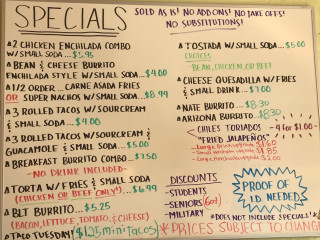 SPECIALS
SOLD AS IS! NO ADDONS! NO TAKE OFFS!
NO SUBSTITUTIONS!
2 CHICKEN ENCHILADA COMBO
W/SMALL SODA... $5.95
BEAN & CHEESE BURRITO
ENCHILADA STYLE W/SMALL SODA... $4.00
1/2 ORDER.. CARNE ASADA FRIES
OR SUPER NACHOS W/SMALL SODA... $8.99
3 ROLLED TACOS W/SOURCREAM
& SMALL SODA... $4.00
3 ROLLED TACOS W/SOURCREAM &
GUACAMOLE & SMALL SODA... $5.00
BREAKFAST BURRITO COMBO... $7.50
-NO DRINK INCLUDED-
TORTA W/FRIES & SMALL SODA
(CHICKEN OR BEEF ONLY!)... $6.99
BLT BURRITO... $5.25
(BACON, LETTUCE, TOMATO, & CHEESE)
TACO TUESDAY! $1.25 mini tacos
TOSTADA W/SMALL SODA... $5.00
CHOICES
BEAN, CHICKEN, OR BEEF
CHEESE QUESADILLA W/FRIES
& SMALL DRINK... $7.00
NATE BURRITO... $8.30
ARIZONA BURRITO... $8.30
CHILES TOREADOS
"FRIED JALAPEÑOS"
9 for $1.00
DISCOUNTS
-STUDENTS
-SENIORS (60+)
-MILITARY
PROOF OF
I.D. NEEDED
*DOES NOT INCLUDE SPECIALS!*
*PRICES SUBJECT TO CHANGE